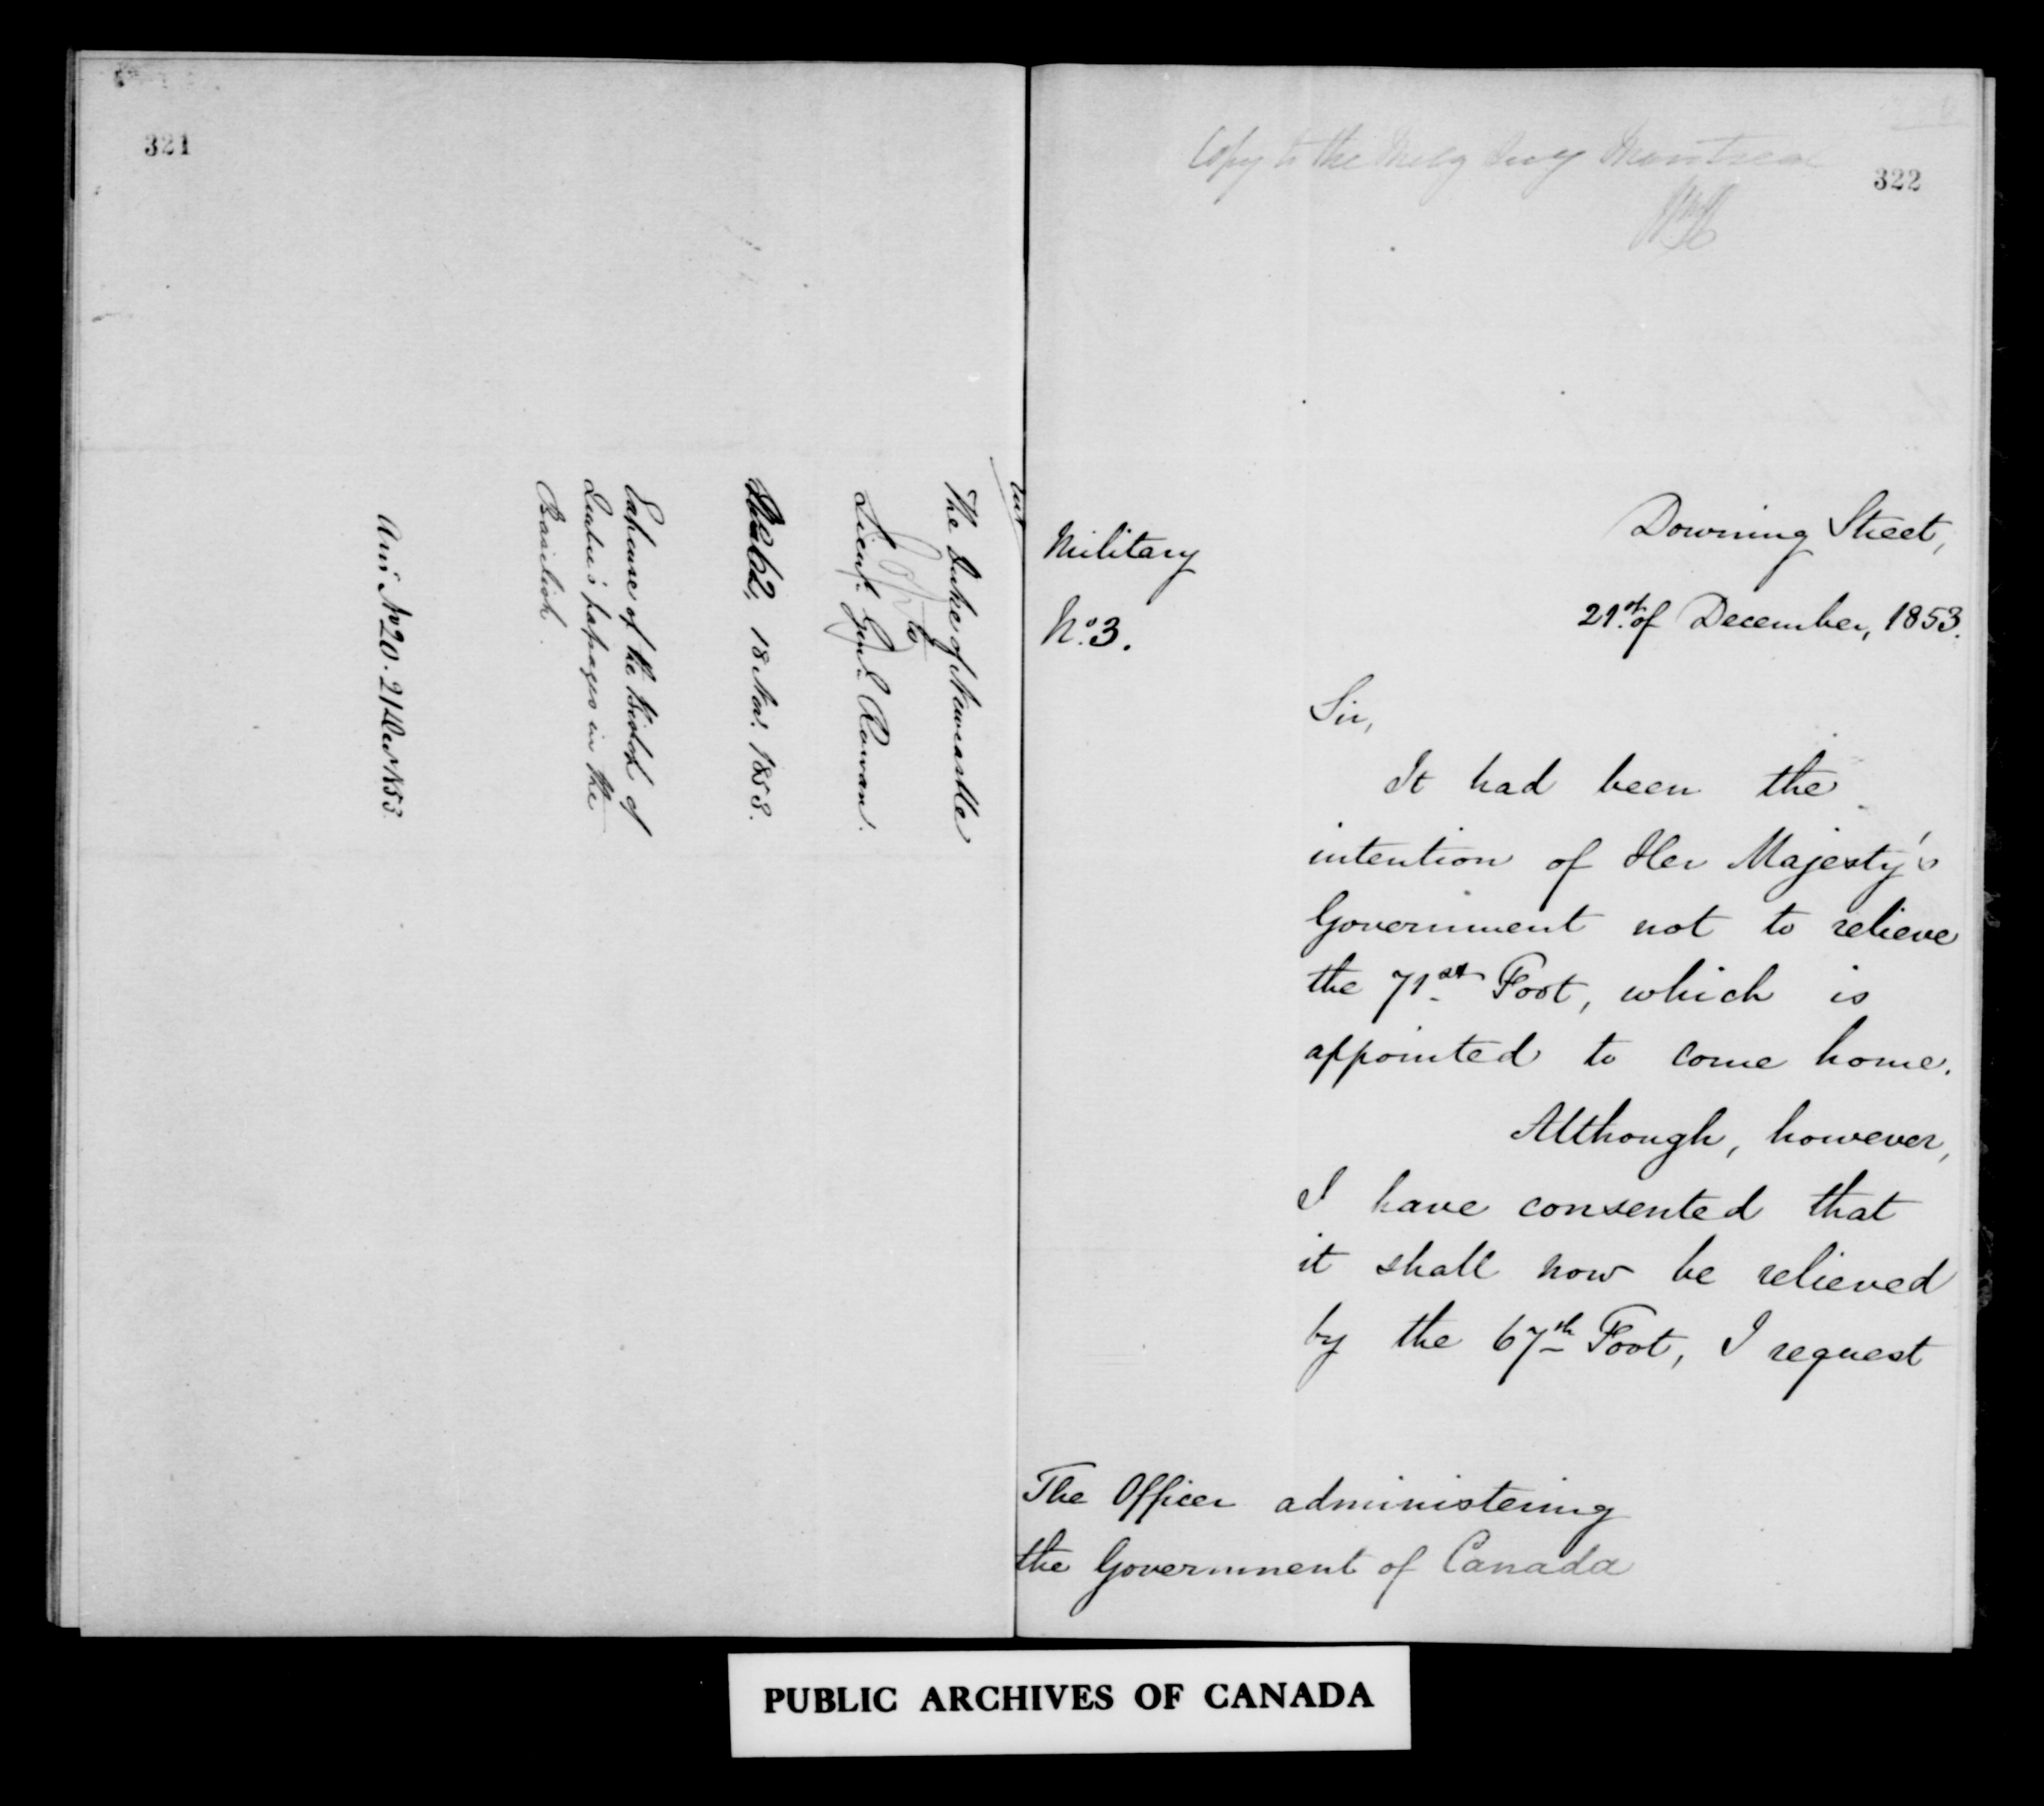 321
The Duke of Newcastle
to
Lieut. Genl. Rowan.
18 Nov. 1853.
Expense of the Bishop of
Quebec's passages in the
Basilisk.
Ansd. No 20. 21 Dec 1853.
Copy to the Mily Secy Montreal
322
Military
No. 3.
Downing Street,
21st of December, 1853.
Sir,
It had been the
intention of Her Majesty's
Government not to relieve
the 71st Foot, which is
appointed to come home.
Although, however,
I have consented that
it shall now be relieved
by the 67th Foot, I request
The Officer administering
the Government of Canada
PUBLIC ARCHIVES OF CANADA